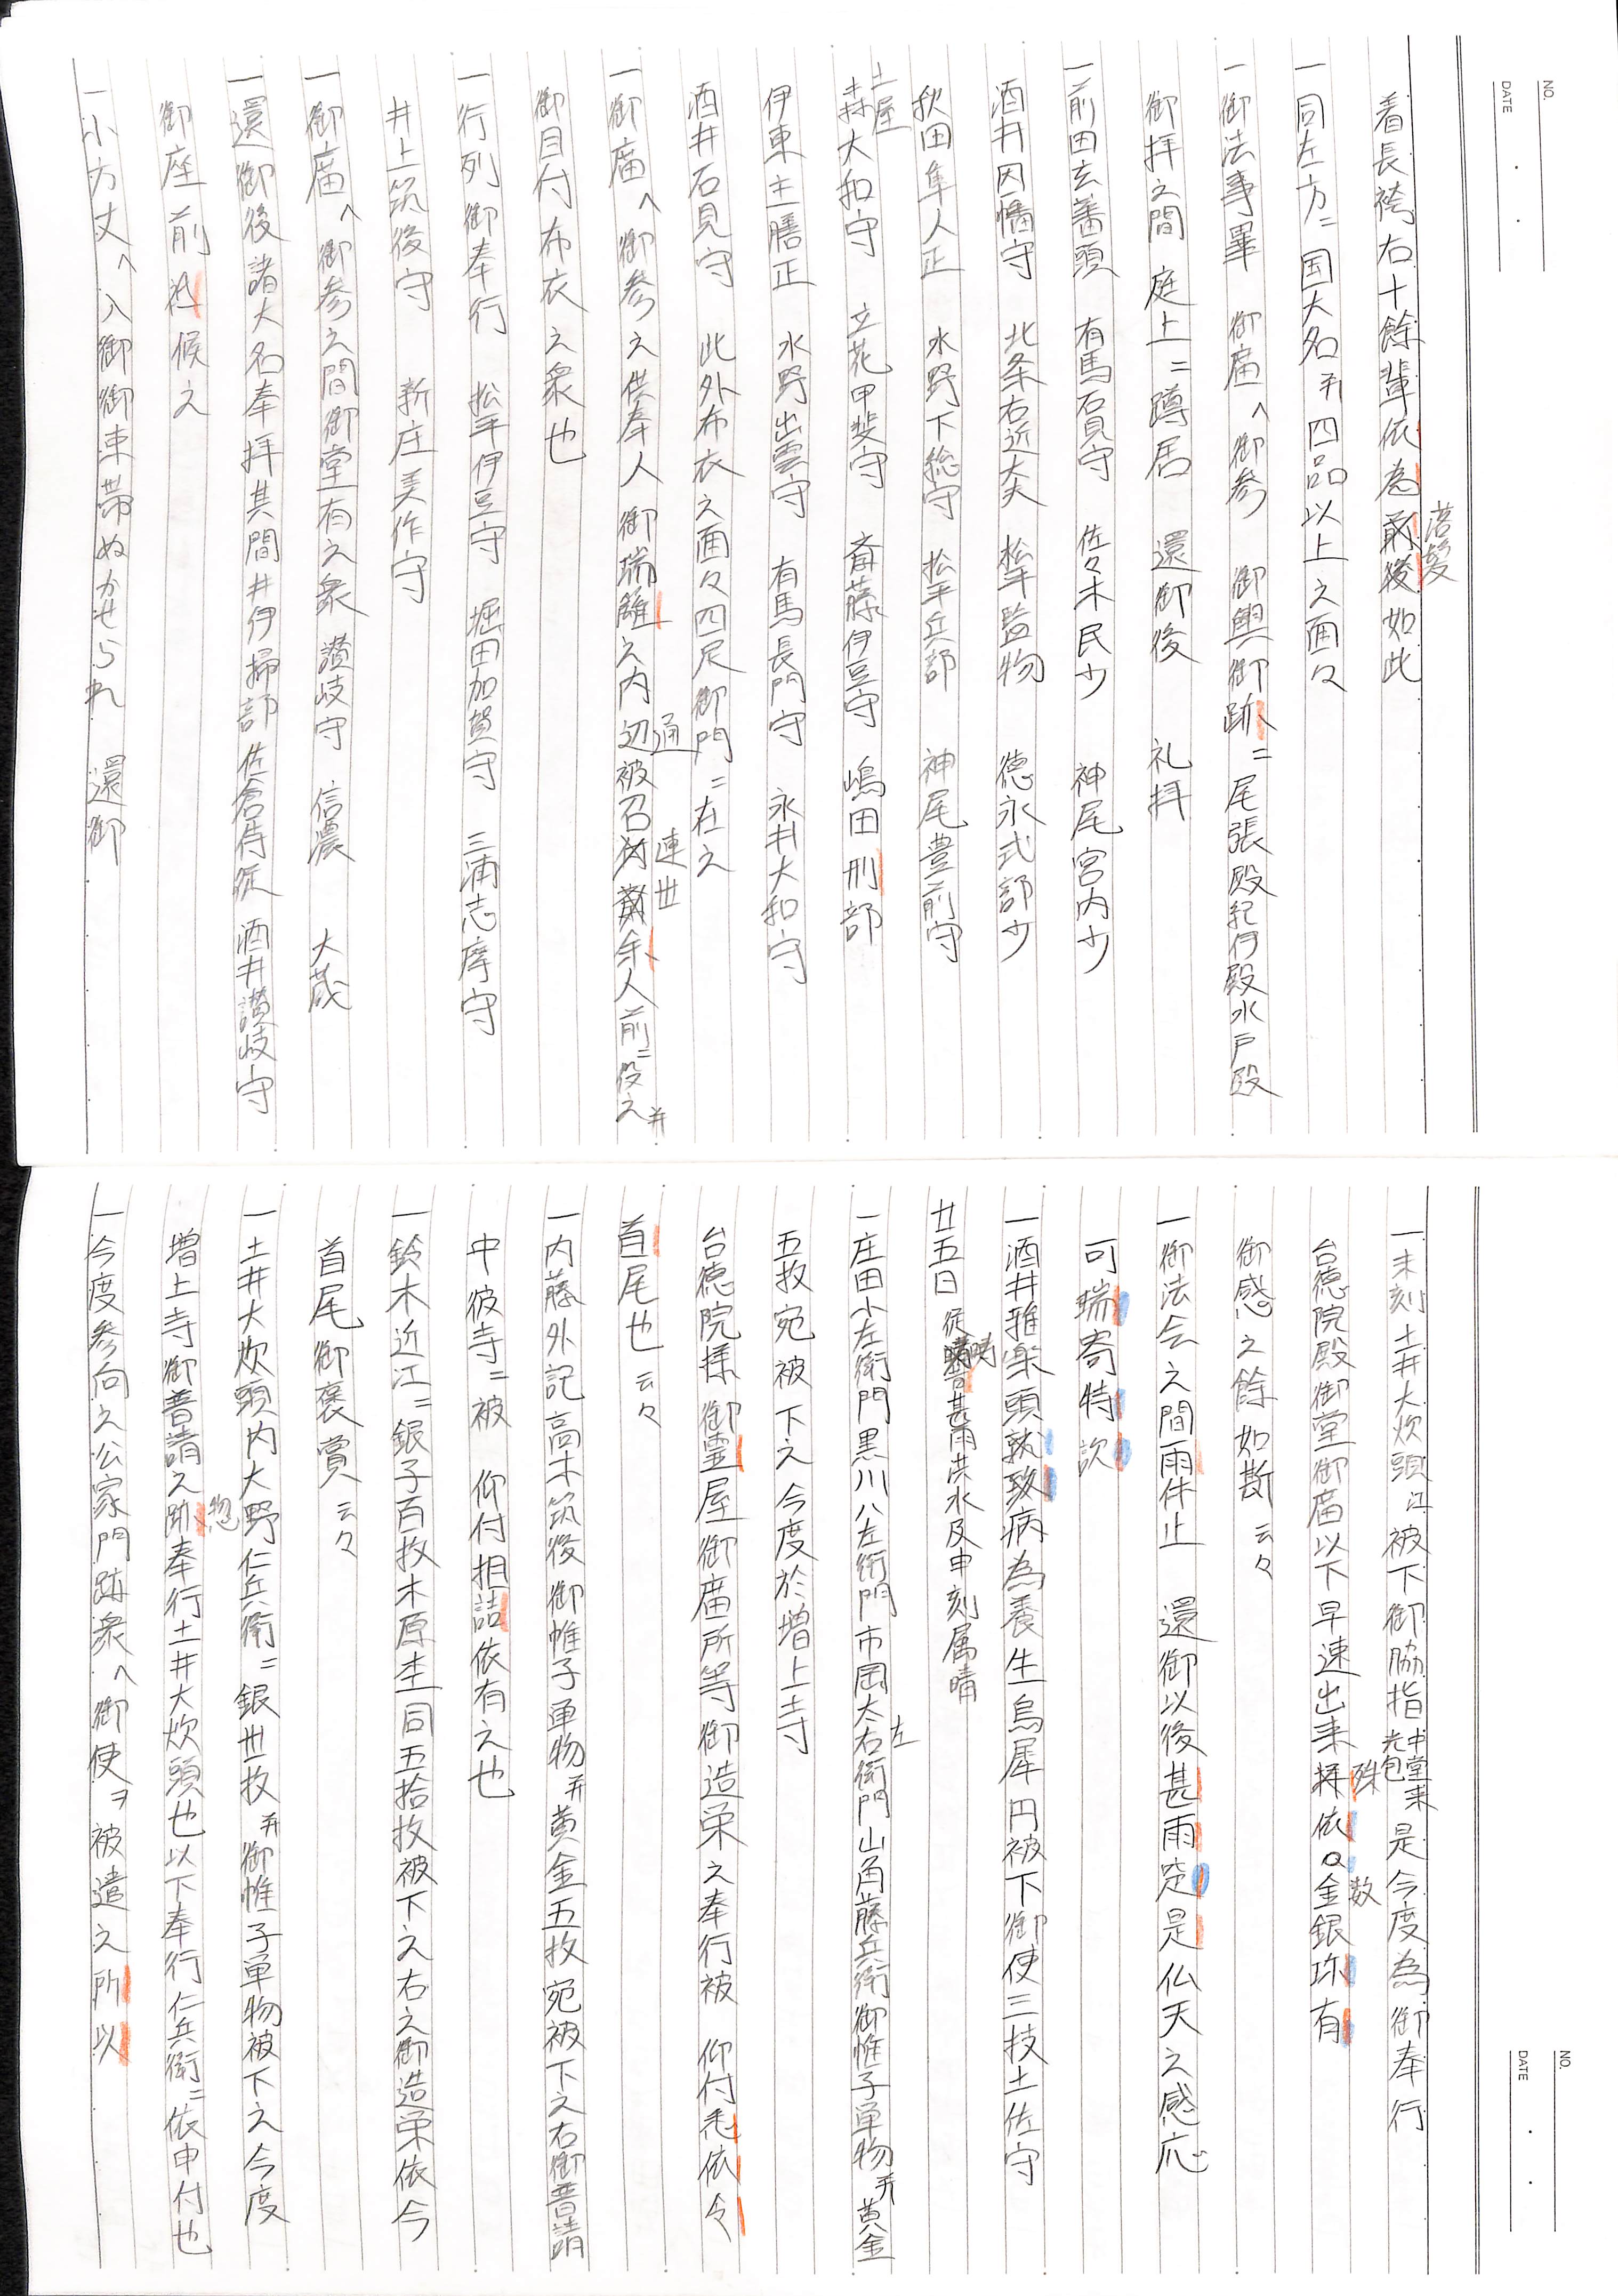 NO.
DATE
着長袴右十餘輩依為落髪如此
一同左方ニ国大名并四品以上之面々
一御法事畢 御廟へ御参 御輿御跡ニ尾張殿紀伊殿水戸殿
御拝之間 庭上ニ蹲居 還御後 礼拝
一前田玄蕃頭 有馬石見守 佐々木民少 神尾宮内少
酒井因幡守 北条右近大夫 松平監物 徳永式部少
秋田隼人正 水野下総守 松平兵部 神尾豊前守
土屋大和守 立花甲斐守 斎藤伊豆守 嶋田刑部
伊東主膳正 水野出雲守 有馬長門守 永井大和守
酒井石見守 此外布衣之面々四足御門ニ在之
一御廟へ御参之供奉人 御瑞籬之内通被召連世余人前ニ役之并
御目付布衣之衆也
一行列御奉行 松平伊豆守 堀田加賀守 三浦志摩守
井上筑後守 新庄美作守
一御廟へ御参之間御堂有之衆 讃岐守 信濃 大蔵
一還御後諸大名奉拝其間井伊掃部 佐倉侍従 酒井讃岐守
御座前祗候之
一小方丈へ入御御束帯ぬかせられ 還御
NO.
DATE
一未刻 土井大炊頭江被下御脇指中堂来光包是今度為御奉行
台徳院殿御堂御廟以下早速出来殊依数金銀珎有
御感之餘如斯云々
一御法会之間雨件止 還御以後甚雨定是仏天之感応
可瑞寄特歟
一酒井雅楽頭就致病為養生烏犀円被下御使三枝土佐守
廿五日 従暁甚雨洪水及申刻属晴
一庄田小左衛門黒川八左衛門市岡太左衛門山角藤兵衛御帷子単物并黄金
五枚宛被下之今度於増上寺
台徳院様御霊屋御廟所等御造栄之奉行被 仰付悉依令
首尾也云々
一内藤外記高木筑後御帷子単物并黄金五枚宛被下之右御普請
中彼寺ニ被 仰付相詰依有之也
一鈴木近江ニ銀子百枚木原杢同五拾枚被下之右之御造栄依今
首尾御褒賞云々
一土井大炊頭内大野仁兵衛ニ銀卅枚并御帷子単物被下之今度
増上寺御普請之惣奉行土井大炊頭也以下奉行仁兵衛ニ依申付也
一今度参向之公家門跡衆へ御使ヲ被遣之所以